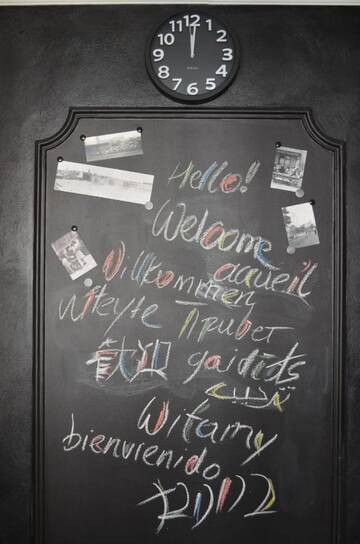 12 1 2 3 4 5 6 7 8 9 10 11
Hello!
Welcome
Willkommen accueil
Witeyte Привет
歓迎 gaidīts
ترحيب
Witamy
bienvenido
ברוכ